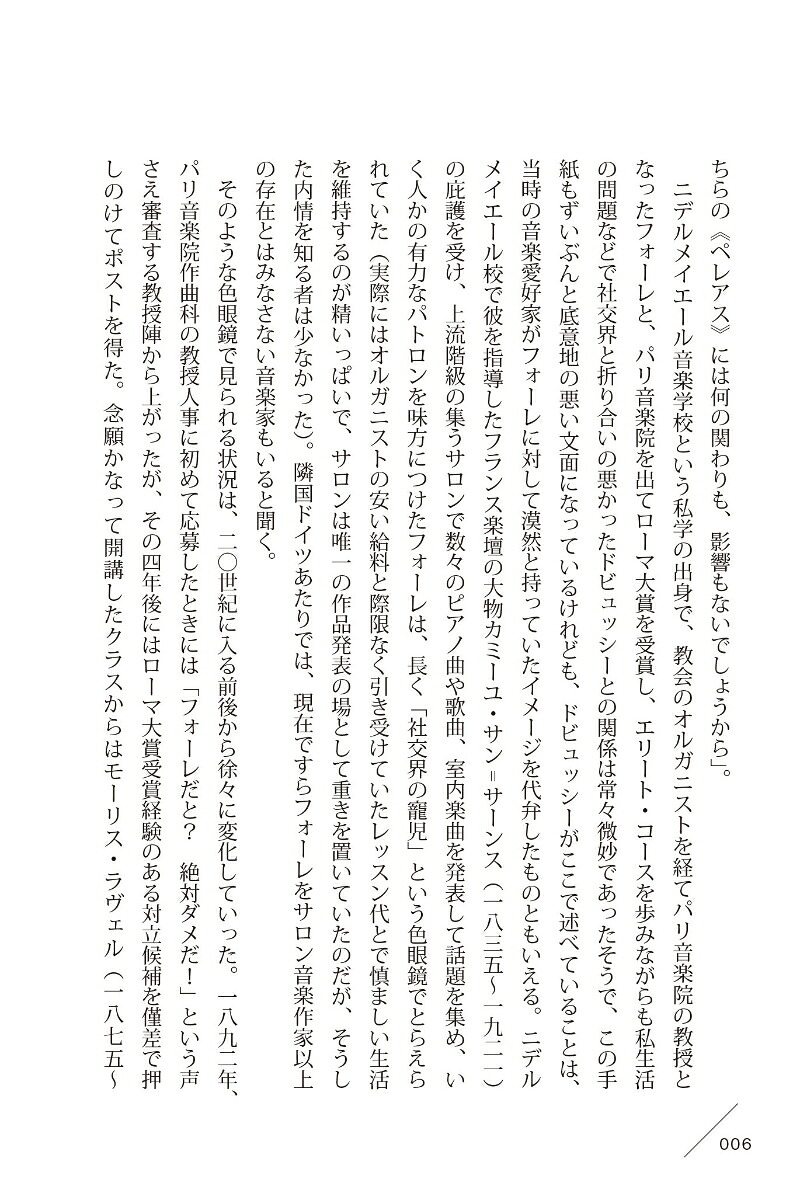 ちらの《ペレアス》には何の関わりも、影響もないでしょうから」。
　ニデルメイエール音楽学校という私学の出身で、教会のオルガニストを経てパリ音楽院の教授と
なったフォーレと、パリ音楽院を出てローマ大賞を受賞し、エリート・コースを歩みながらも私生活
の問題などで社交界と折り合いの悪かったドビュッシーとの関係は常々微妙であったそうで、この手
紙もずいぶんと底意地の悪い文面になっているけれども、ドビュッシーがここで述べていることは、
当時の音楽愛好家がフォーレに対して漠然と持っていたイメージを代弁したものともいえる。ニデル
メイエール校で彼を指導したフランス楽壇の大物カミーユ・サン＝サーンス（一八三五〜一九二一）
の庇護を受け、上流階級の集うサロンで数々のピアノ曲や歌曲、室内楽曲を発表して話題を集め、い
く人かの有力なパトロンを味方につけたフォーレは、長く「社交界の寵児」という色眼鏡でとらえら
れていた（実際にはオルガニストの安い給料と際限なく引き受けていたレッスン代とで慎ましい生活
を維持するのが精いっぱいで、サロンは唯一の作品発表の場として重きを置いていたのだが、そうし
た内情を知る者は少なかった）。隣国ドイツあたりでは、現在ですらフォーレをサロン音楽作家以上
の存在とはみなさない音楽家もいると聞く。
　そのような色眼鏡で見られる状況は、二〇世紀に入る前後から徐々に変化していった。一八九二年、
パリ音楽院作曲科の教授人事に初めて応募したときには「フォーレだと？　絶対ダメだ！」という声
さえ審査する教授陣から上がったが、その四年後にはローマ大賞受賞経験のある対立候補を僅差で押
しのけてポストを得た。念願かなって開講したクラスからはモーリス・ラヴェル（一八七五〜
006